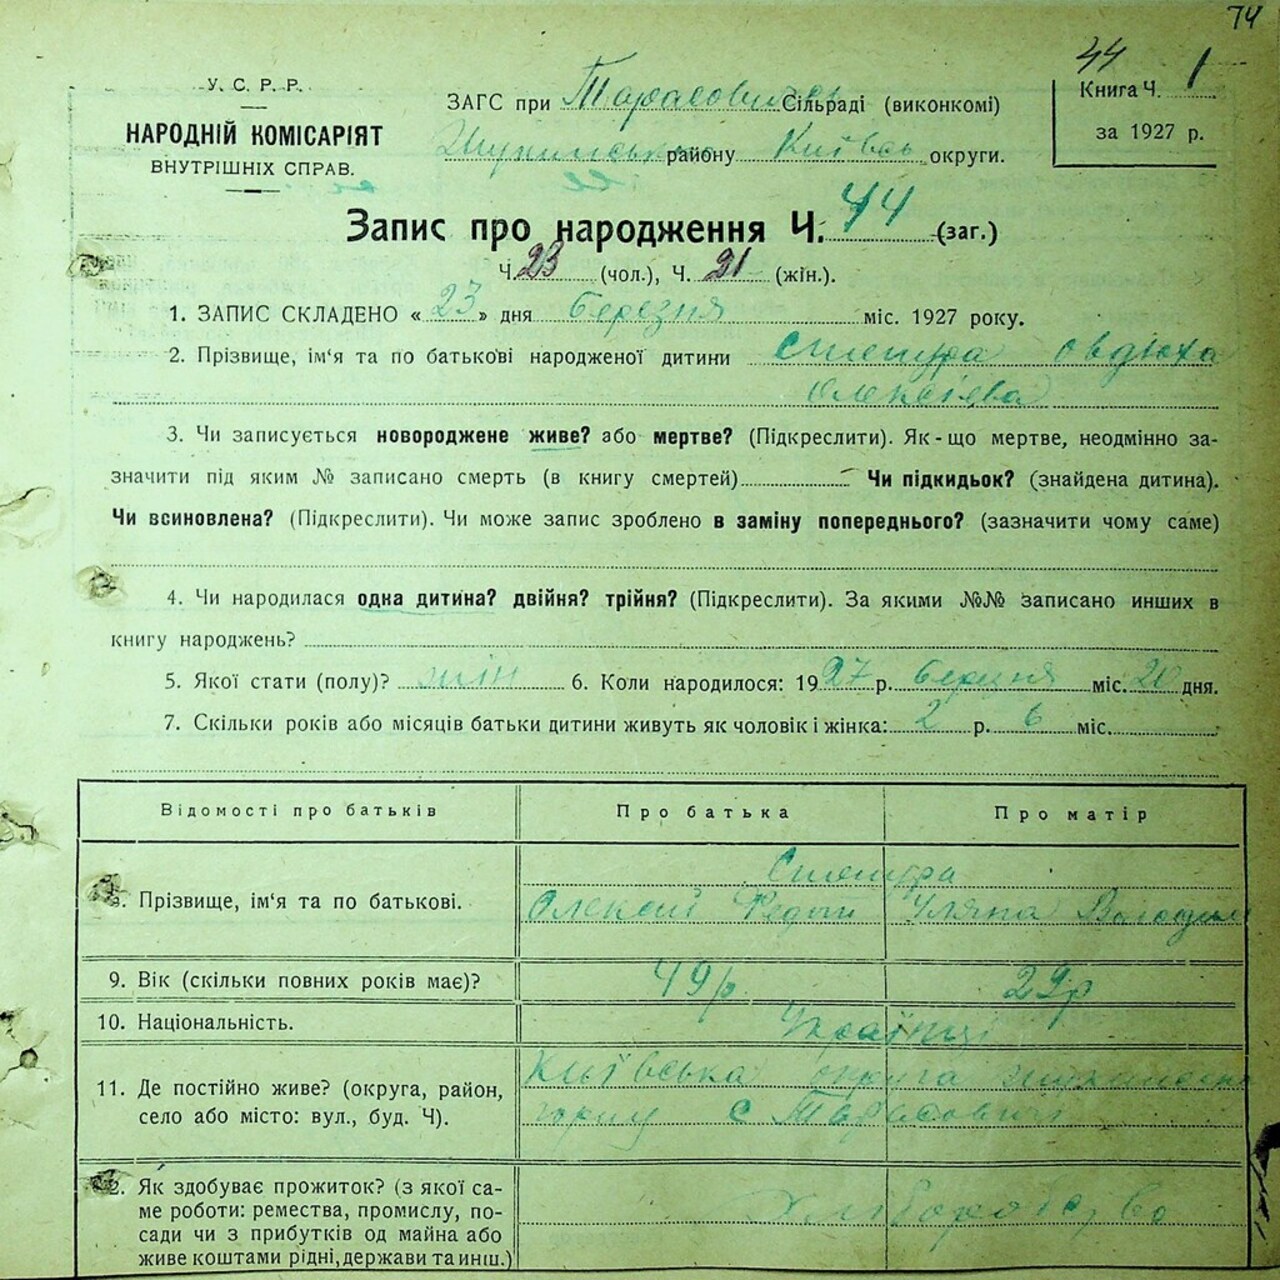 74
44
У. С. Р. Р.
НАРОДНІЙ КОМІСАРІЯТ
ВНУТРІШНІХ СПРАВ.
ЗАГС при Тарасовицьк. Сільраді (виконкомі)
району Київсь округи.
Книга Ч. 1
за 1927 р.
Запис про народження Ч. 44 (заг.)
Ч. 23 (чол.), Ч. 21 (жін.).
1. ЗАПИС СКЛАДЕНО « 23 » дня березня міс. 1927 року.
2. Прізвище, ім'я та по батькові народженої дитини
Олексієва
3. Чи записується новороджене живе? або мертве? (Підкреслити). Як-що мертве, неодмінно за-
значити під яким № записано смерть (в книгу смертей) Чи підкидьок? (знайдена дитина).
Чи всиновлена? (Підкреслити). Чи може запис зроблено в заміну попереднього? (зазначити чому саме)
4. Чи народилася одна дитина? двійня? трійня? (Підкреслити). За якими №№ записано инших в
книгу народжень?
5. Якої стати (полу)? жін 6. Коли народилося: 1927 р. березня міс. 20 дня.
7. Скільки років або місяців батьки дитини живуть як чоловік і жінка: 2 р. 6 міс.
Відомості про батьків Про батька Про матір
8. Прізвище, ім'я та по батькові.
Олексій Федот Уляна Володим
9. Вік (скільки повних років має)? 49р. 29р
10. Національність. Українці
11. Де постійно живе? (округа, район, Київська округа
село або місто: вул., буд. Ч). с Тарасовичі
12. Як здобуває прожиток? (з якої са-
ме роботи: ремества, промислу, по- Хліборобство
сади чи з прибутків од майна або
живе коштами рідні, держави та инш.)